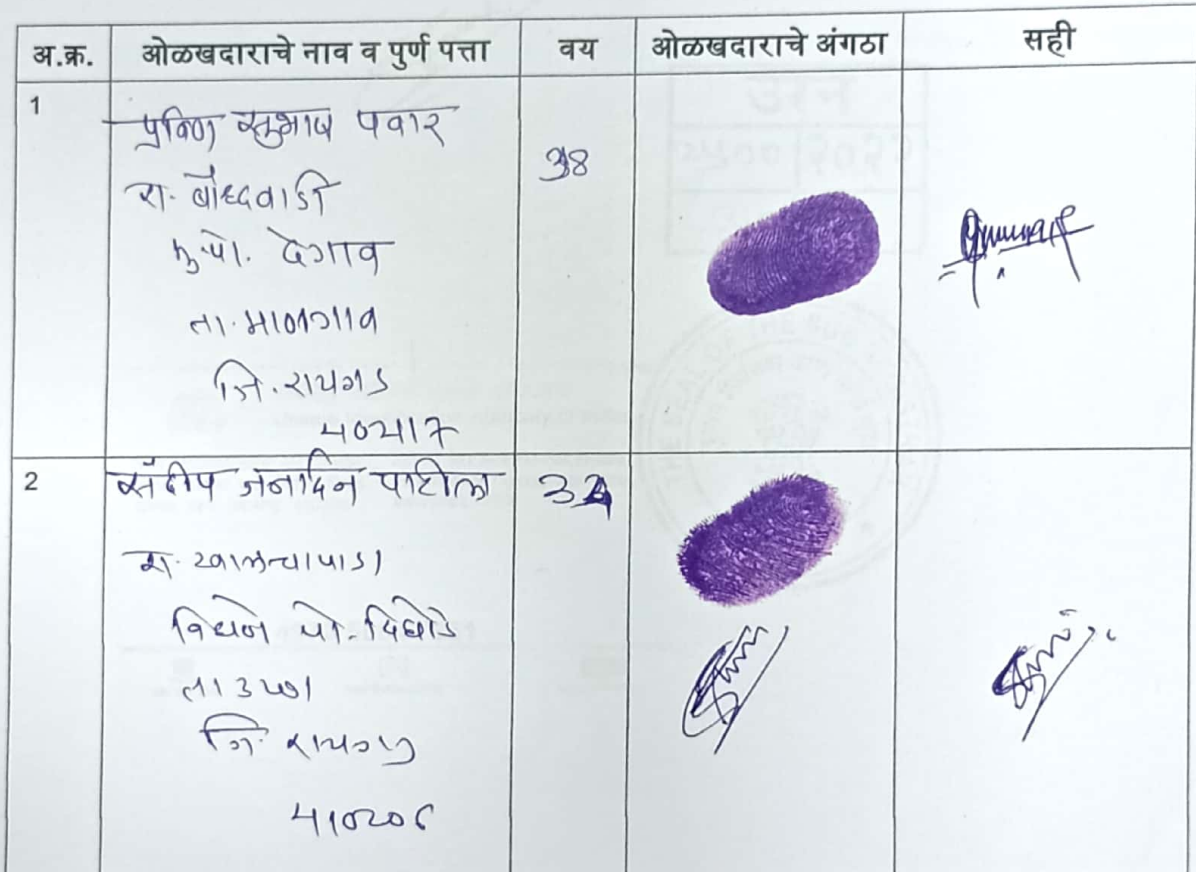 अ.क्र. ओळखदाराचे नाव व पुर्ण पत्ता वय ओळखदाराचे अंगठा सही
1
प्रविण सुभाष पवार
38
रा. बौध्दवाडी
मु.पो. देगाव
ता. माणगाव
जि. रायगड
402117
2 संदीप जनार्दन पाटील
रा. खालचापाडा
विंधणे पो. दिघोडे
ता उरण
जि. रायगड
410206